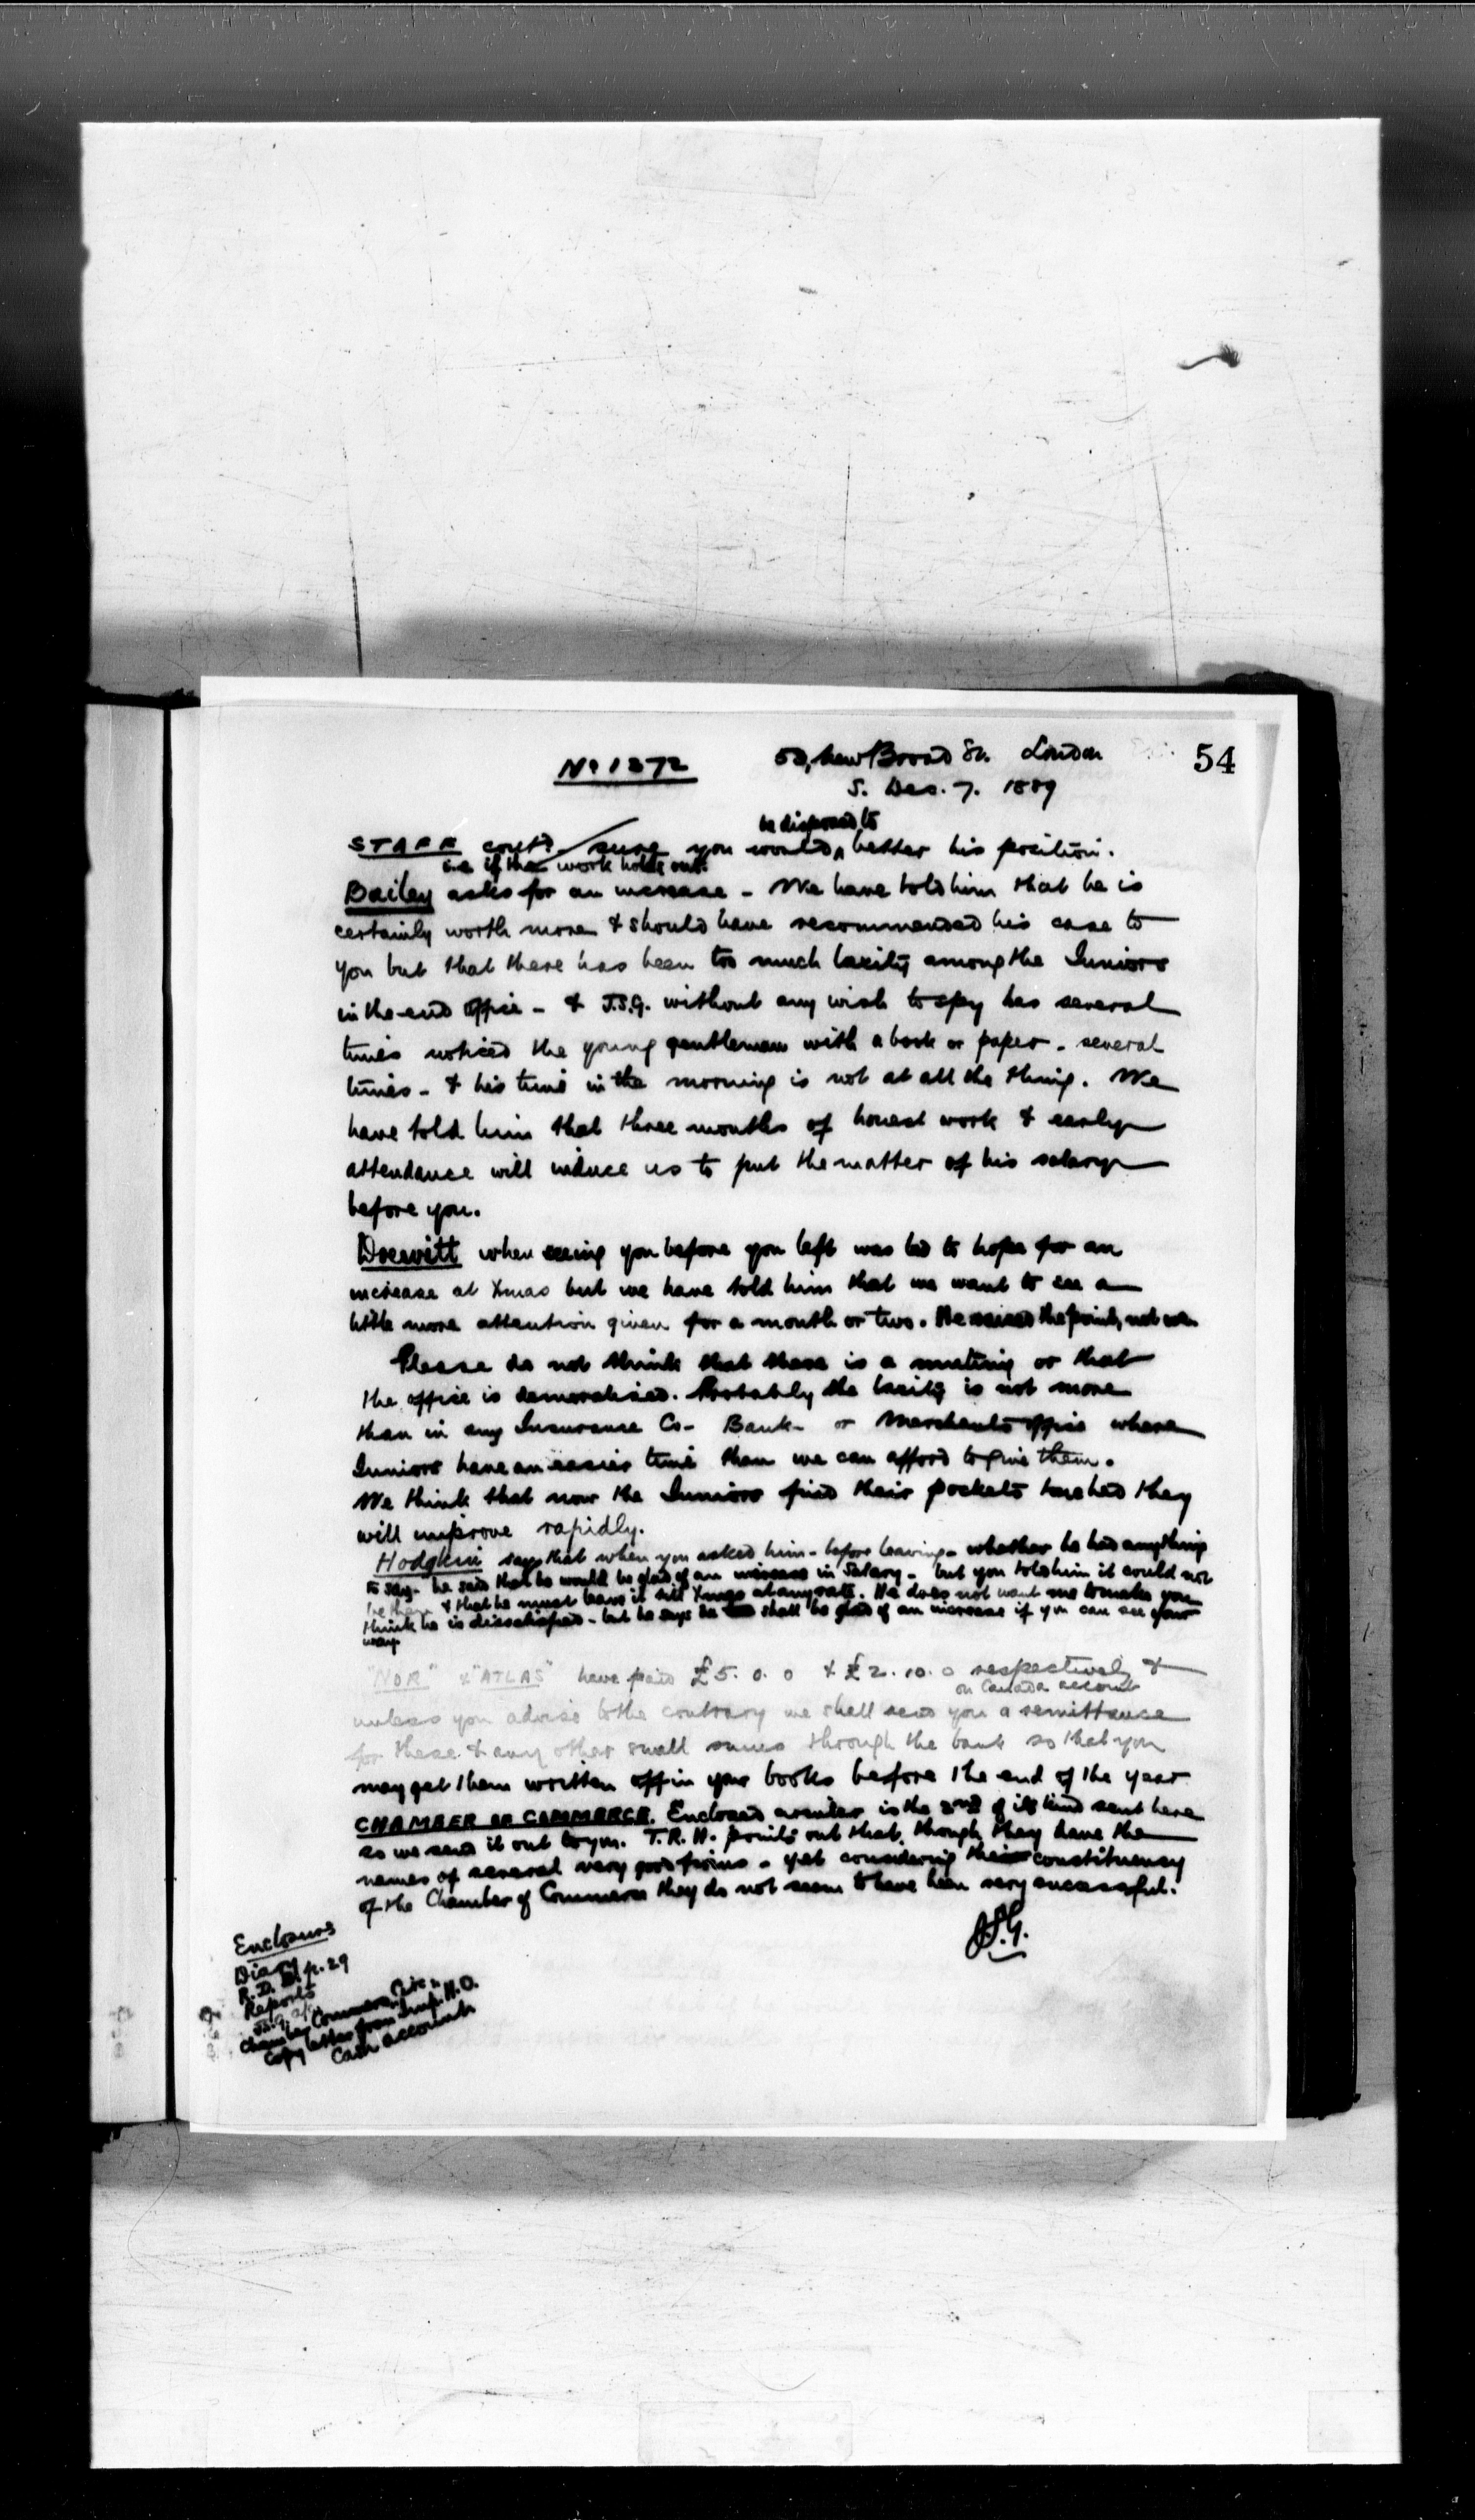 54
No 1372
50, New Broad St. London
S. Dec. 7. 1889
be disposed to
STAFF contd. sure you would ^ better his position.
i.e. if the work holds out.
Bailey asks for an increase - We have told him that he is
certainly worth more & should have recommended his case to
you but that there has been too much laxity among the Juniors
in the end office - & J.S.G. without any wish to spy has several
times noticed the young gentleman with a book or paper - several
times - & his time in the morning is not at all the thing. We
have told him that three months of honest work & early
attendance will induce us to put the matter of his salary
before you.
Drewitt when seeing you before you left was led to hope for an
increase at Xmas but we have told him that we want to see a
little more attention given for a month or two. He raised the point, not we.
Please do not think that there is a mutiny or that
the office is demoralised. Probably the laxity is not more
than in any Insurance Co - Bank - or Merchants office where
Juniors have an easier time than we can afford to give them.
We think that now the Juniors find their pockets touched they
will improve rapidly.
Hodgkin says that when you asked him - before leaving - whether he had anything
to say - he said that he would be glad of an increase in Salary - but you told him it could not
be then & that he must leave it till Xmas at any rate. He does not want me to make you
think he is dissatisfied - but he says he shall be glad of an increase if you can see your
way.
"NOR" & "ATLAS" have paid £5. 0. 0 & £2. 10. 0 respectively &
on Canada account
unless you advise to the contrary we shall send you a remittance
for these & any other small sums through the bank so that you
may get them written off in your books before the end of the year
CHAMBER OF COMMERCE. Enclosed circular is the 2nd of its kind sent here
so we send it out to you. T.R.H. points out that, though they have the
names of several very good firms - yet considering their constituency
of the Chamber of Commerce they do not seem to have been very successful.
J.S.G.
Enclosures
Diary
R.D. p. 29
Reports
J.S.G.
Chamber Commerce Circr.
Copy letter from Imp. H.O.
Cash accounts